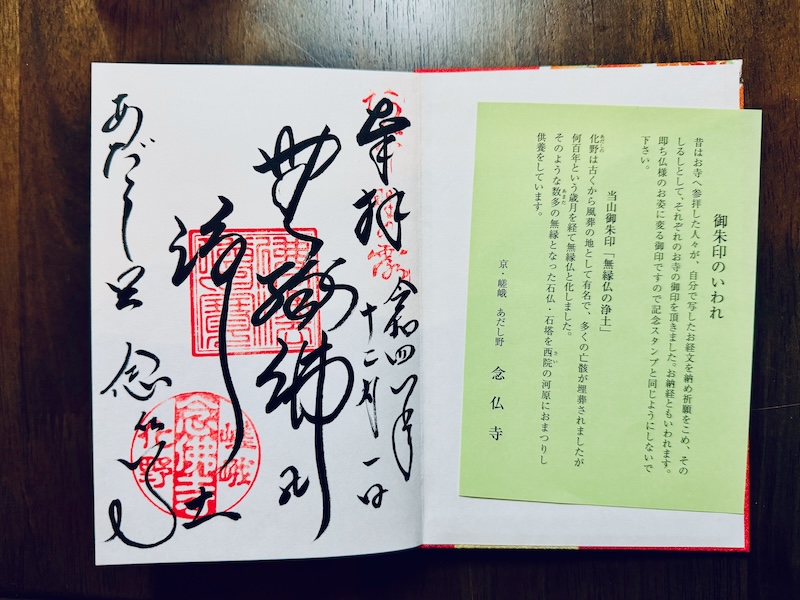 御朱印のいわれ
昔はお寺へ参拝した人々が、自分で写したお経文を納め祈願をこめ、その
しるしとして、それぞれのお寺の御印を頂きました。お納経ともいわれます。
即ち仏様のお姿に変る御印ですので記念スタンプと同じようにしないで
下さい。
当山御朱印「無縁仏の浄土」
化野は古くから風葬の地として有名で、多くの亡骸が埋葬されましたが
何百年という歳月を経て無縁仏と化しました。
そのような数多の無縁となった石仏・石塔を西院の河原におまつりし
供養をしています。
京・嵯峨 あだし野 念仏寺
奉拝
令和四年
十二月一日
無縁佛之
浄土
嵯峨
念佛寺
化野
あだし野 念仏寺